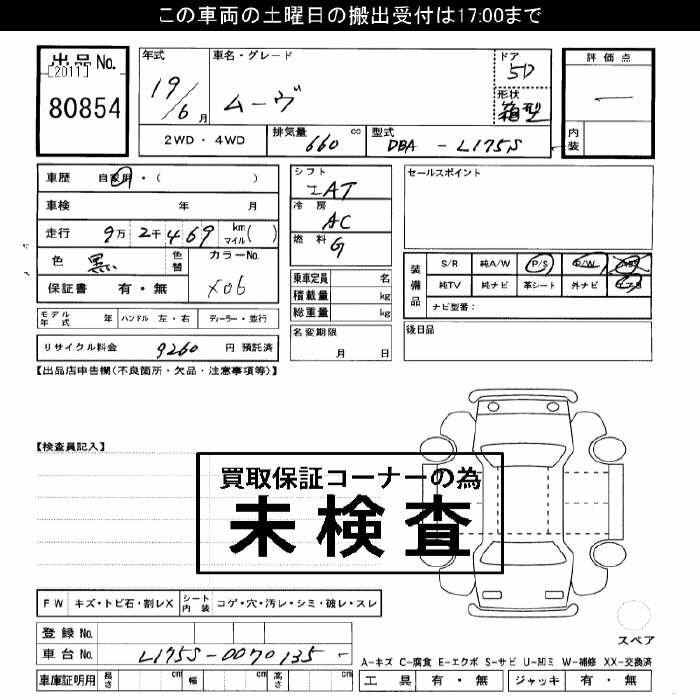 この車両の土曜日の搬出受付は17:00まで
出品No.
[2011]
80854
年式
19/6月
車名・グレード
ムーヴ
ドア
5D
形状
箱型
評価点
―
内装
2WD・4WD
排気量 660 cc
型式 DBA - L175S
車歴 自家用・( )
車検 年 月
走行 9万2千469 km マイル( )
色 黒 色替
カラーNo. X06
保証書 有・無
シフト
IAT
冷房
AC
燃料
G
セールスポイント
乗車定員 名
積載量 kg
総重量 kg
装備品
S/R 純A/W P/S P/W ABS
純TV 純ナビ 革シート 外ナビ エアB
ナビ型番:
モデル年式 年 ハンドル 左・右 ディーラー・並行
名変期限
月 日
後日品
リサイクル料金 9260 円 預託済
【出品店申告欄(不良箇所・欠品・注意事項等)】
【検査員記入】
買取保証コーナーの為
未検査
FW キズ・トビ石・割レX
シート内装 コゲ・穴・汚レ・シミ・破レ・スレ
登録No.
車台No. L175S-0070135-
車庫証明用 長さ cm 幅 cm 高さ cm
スペア
A-キズ C-腐食 E-エクボ S-サビ U-凹ミ W-補修 XX-交換済
工具 有・無 ジャッキ 有・無